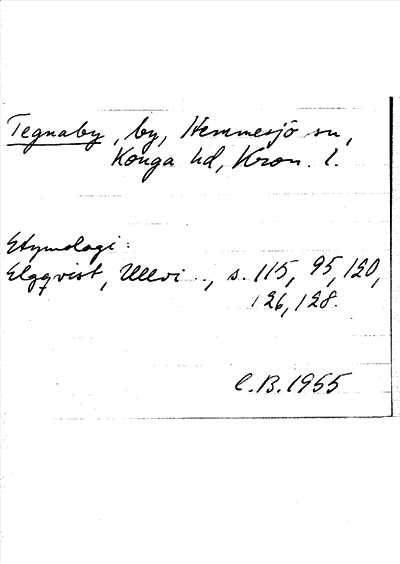 Tegnaby, by, Hemmesjö sn,
Konga hd, Kron. l.
Etymologi:
Elgqvist, Ullvi..., s. 115, 95, 120,
126, 128.
C.B. 1955